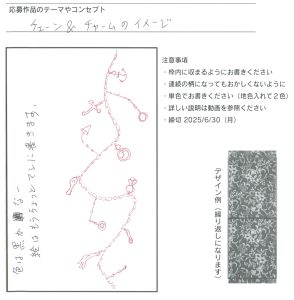 応募作品のテーマやコンセプト
チェーン&チャームのイメージ
注意事項
・枠内に収まるようにお書きください
・連続の柄になってもおかしくないように
・単色でお書きください(地色入れて2色)
・詳しい説明は動画を参照ください
・締切 2025/6/30(月)
絵はもうちょっとていねいに書きます。
色は黒か
なー
デザイン例(繰り返しになります)